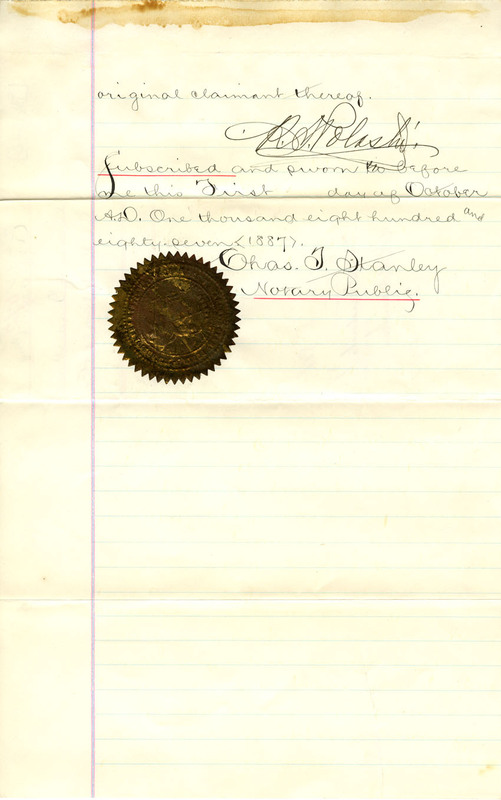 original claimant thereof.
Polaski.
Subscribed and sworn to before
me this First day of October
A.D. One thousand eight hundred and
eighty-seven (1887).
Chas. T. Stanley
Notary Public,